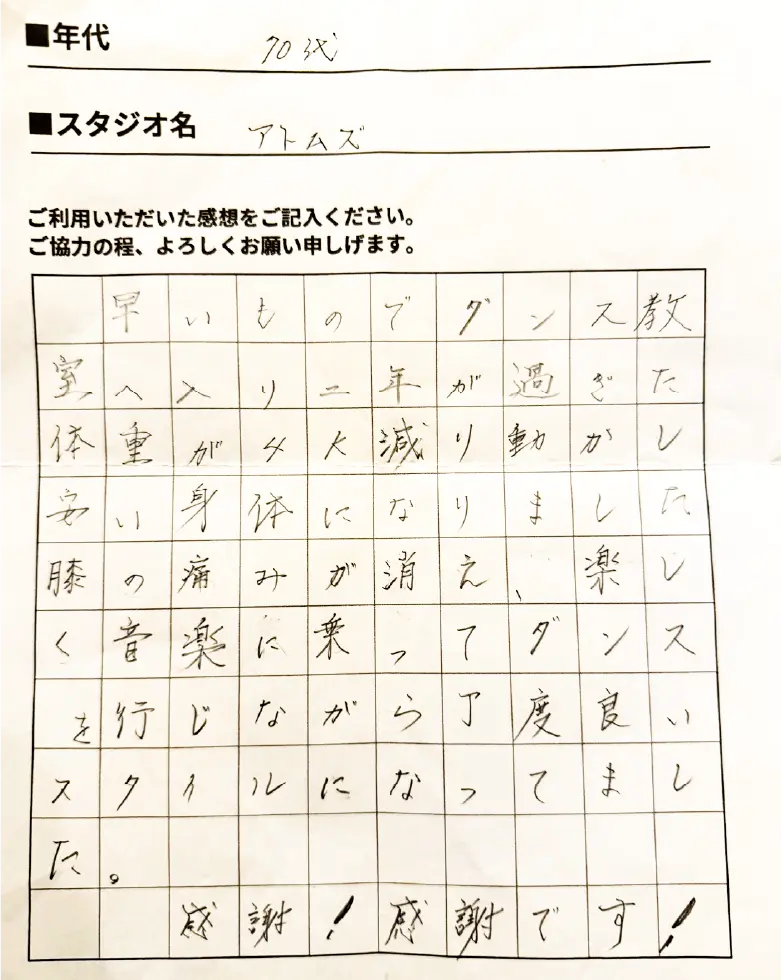 ■年代 70代
■スタジオ名 アトムズ
ご利用いただいた感想をご記入ください。
ご協力の程、よろしくお願い申しげます。
早いものでダンス教
室へ入り二年が過ぎた
体重が4K減り動かし
安い身体になりました
膝の痛みが消え、楽し
く音楽に乗ってダンス
を行じながら丁度良い
スタイルになってまし
た。
感謝!感謝です!